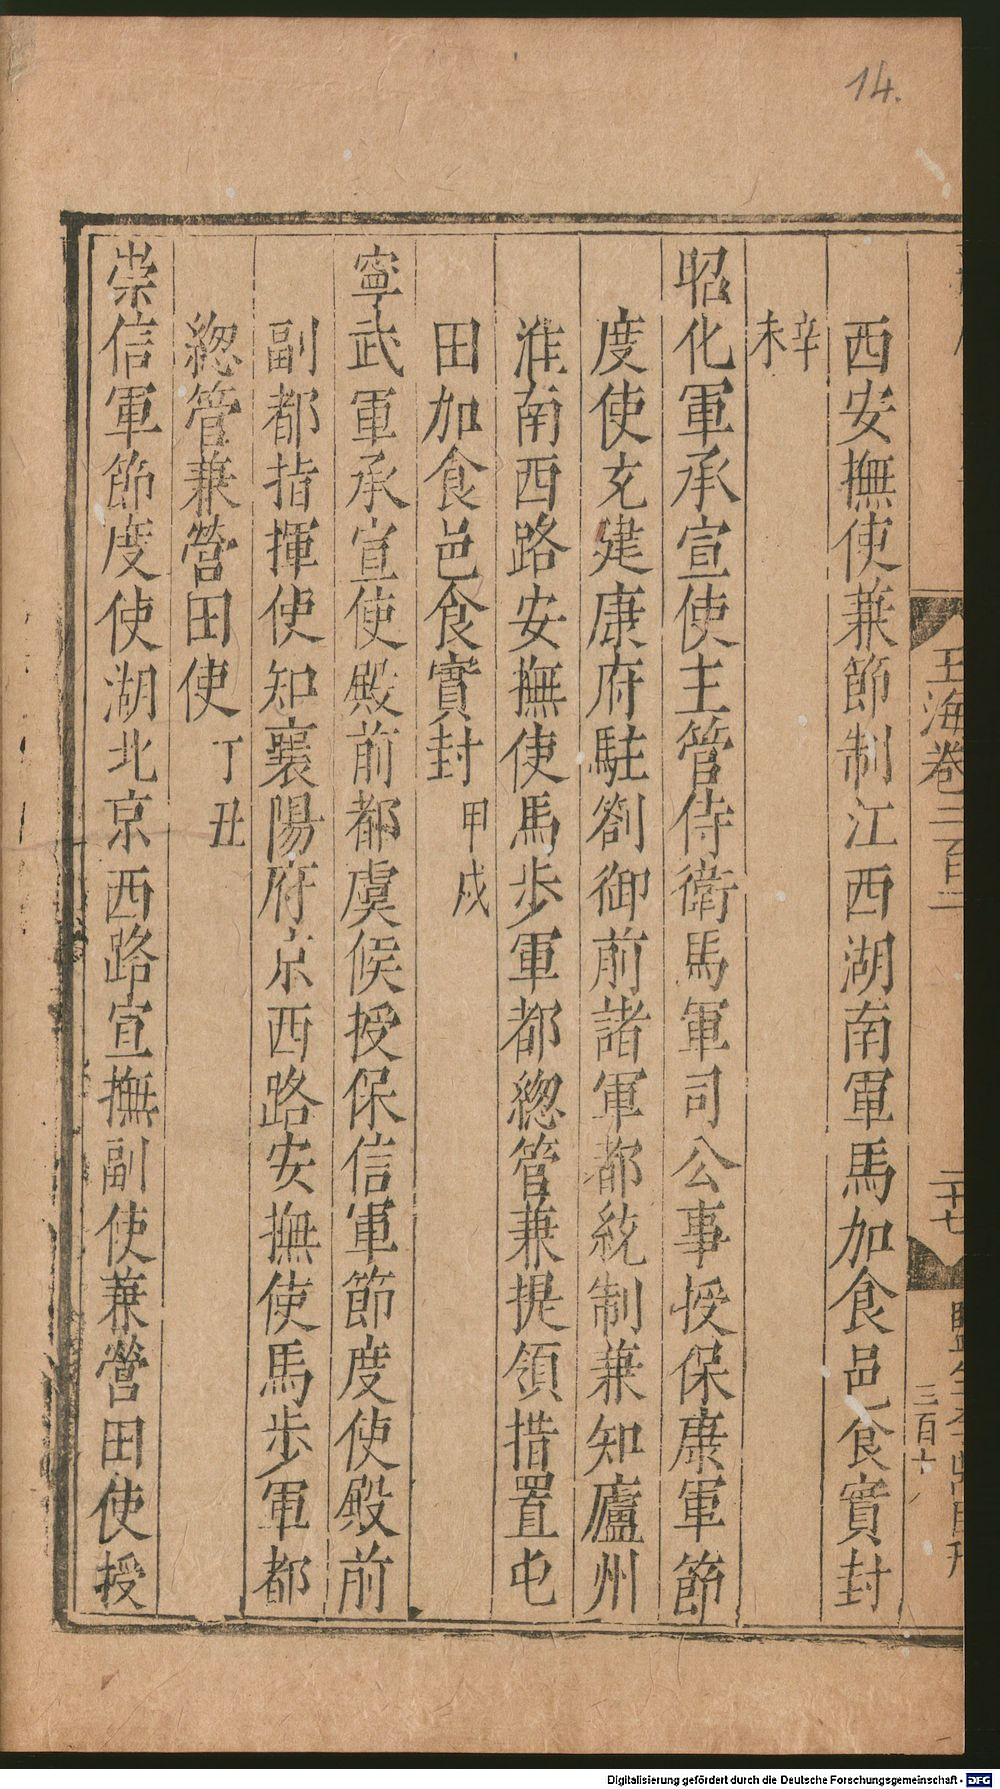 14.
玉海卷二百二
二十七
三百十
西安撫使兼節制江西湖南軍馬加食邑食實封
辛未
昭化軍承宣使主管侍衛馬軍司公事授保康軍節
度使充建康府駐劄御前諸軍都統制兼知廬州
淮南西路安撫使馬步軍都總管兼提領措置屯
田加食邑食實封 甲戌
寧武軍承宣使殿前都虞候授保信軍節度使殿前
副都指揮使知襄陽府京西路安撫使馬步軍都
總管兼營田使 丁丑
崇信軍節度使湖北京西路宣撫副使兼營田使授
Digitalisierung gefördert durch die Deutsche Forschungsgemeinschaft - DFG